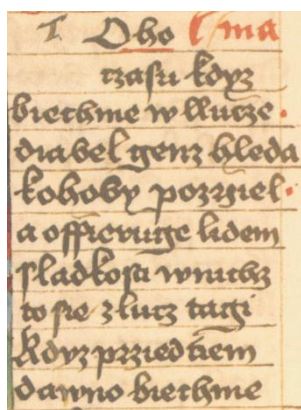 T Oho lma
tzasu kdyz
biechme w llucze
diabel genz hleda
kohoby pozrziel
a offieruge lidem
sladkosti wnichz
to sie zlucz tagi
Kdyz przied tiem
dawno biechme